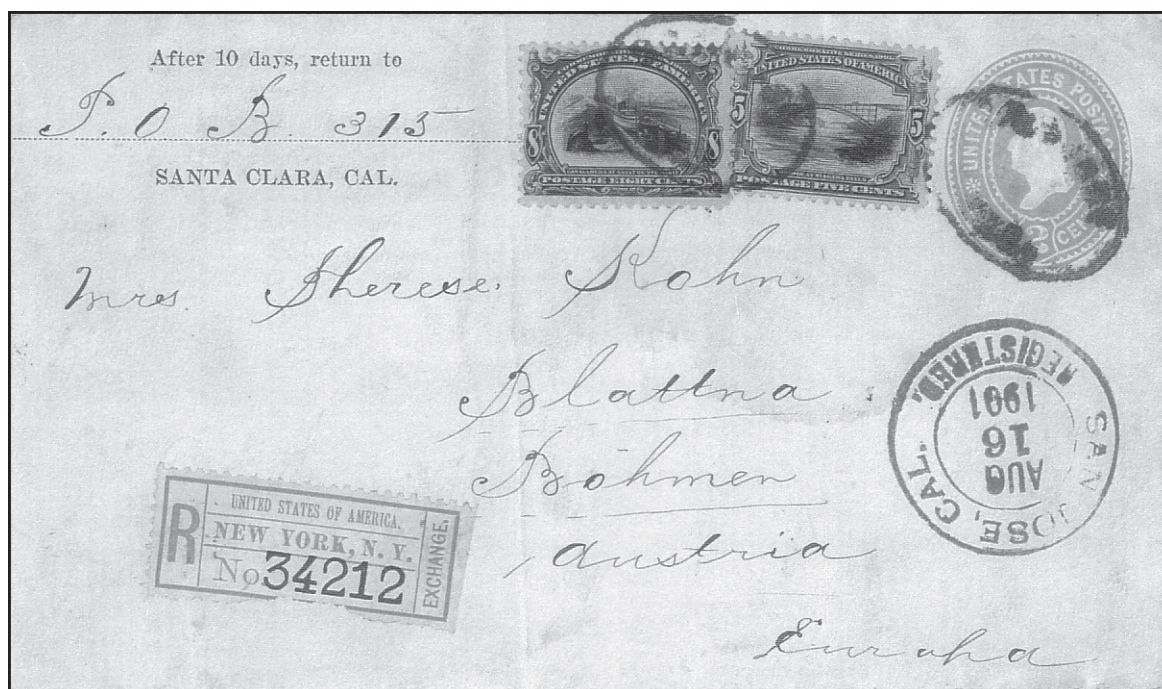 After 10 days, return to
P. O B. 315
SANTA CLARA, CAL.
UNITED STATES OF AMERICA
8 8
POSTAGE EIGHT CENTS
COMMEMORATIVE SERIES, 1901
UNITED STATES OF AMERICA
5 5
POSTAGE FIVE CENTS
UNITED STATES POSTAGE
2 CENTS
Mrs. Therese. Kohn
Blattna
Böhmen
Austria
Europa
SAN JOSE, CAL.
REGISTERED.
AUG
16
1901
R
UNITED STATES OF AMERICA.
NEW YORK, N. Y.
No 34212
EXCHANGE.